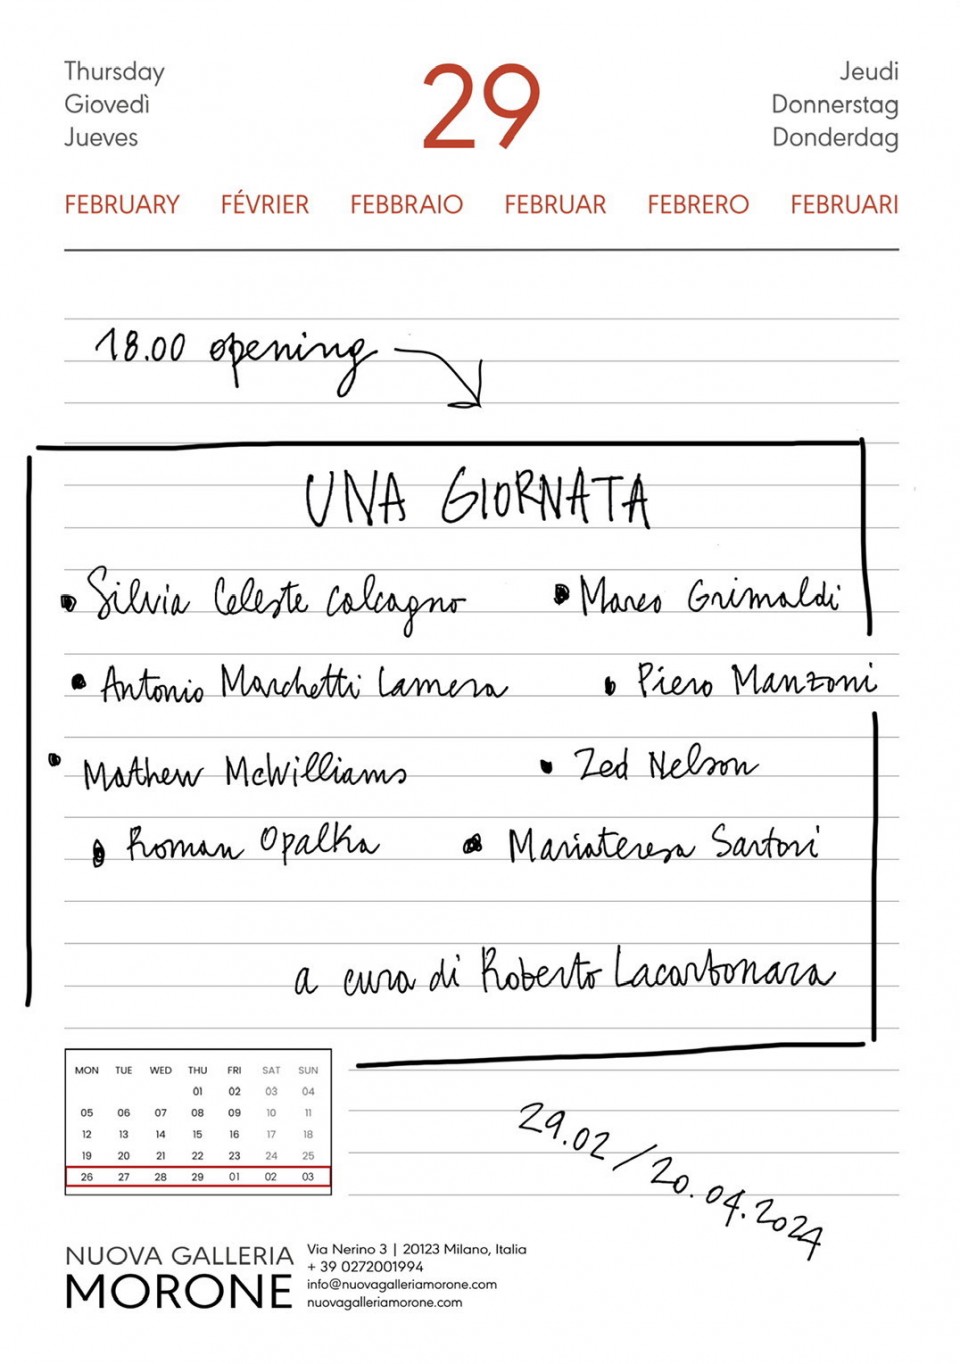 Thursday 29 Jeudi
Giovedì Donnerstag
Jueves Donderdag
FEBRUARY FÉVRIER FEBBRAIO FEBRUAR FEBRERO FEBRUARI
18.00 opening
UNA GIORNATA
• Silvia Celeste Calcagno • Marco Grimaldi
• Antonio Marchetti Lamera • Piero Manzoni
• Mathew McWilliams • Zed Nelson
• Roman Opalka • Mariateresa Sartori
a cura di Roberto Lacarbonara
MON TUE WED THU FRI SAT SUN
01 02 03 04
05 06 07 08 09 10 11
12 13 14 15 16 17 18
19 20 21 22 23 24 25
26 27 28 29 01 02 03
29.02 / 20.04.2024
NUOVA GALLERIA
MORONE
Via Nerino 3 | 20123 Milano, Italia
+ 39 0272001994
info@nuovagalleriamorone.com
nuovagalleriamorone.com